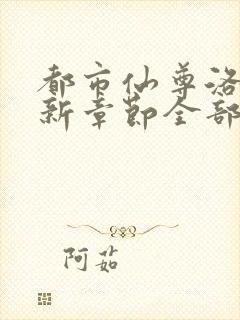 都市仙尊洛
新章节全部
阿茹